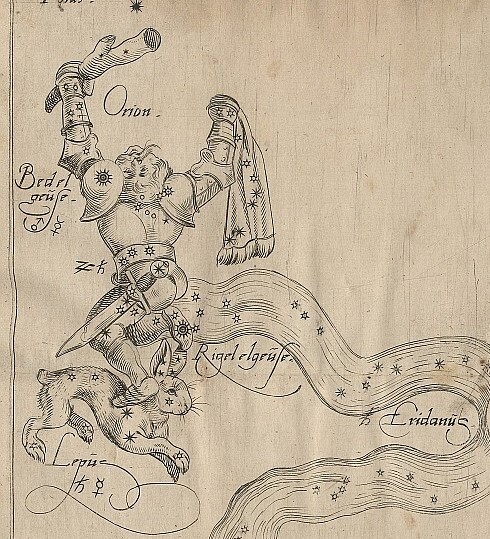 Orion.
Bedel
geuse.
♂ ☿
♃ ♄
Rigel elgeuse.
♄ Eridanus
Lepus
♄ ☿